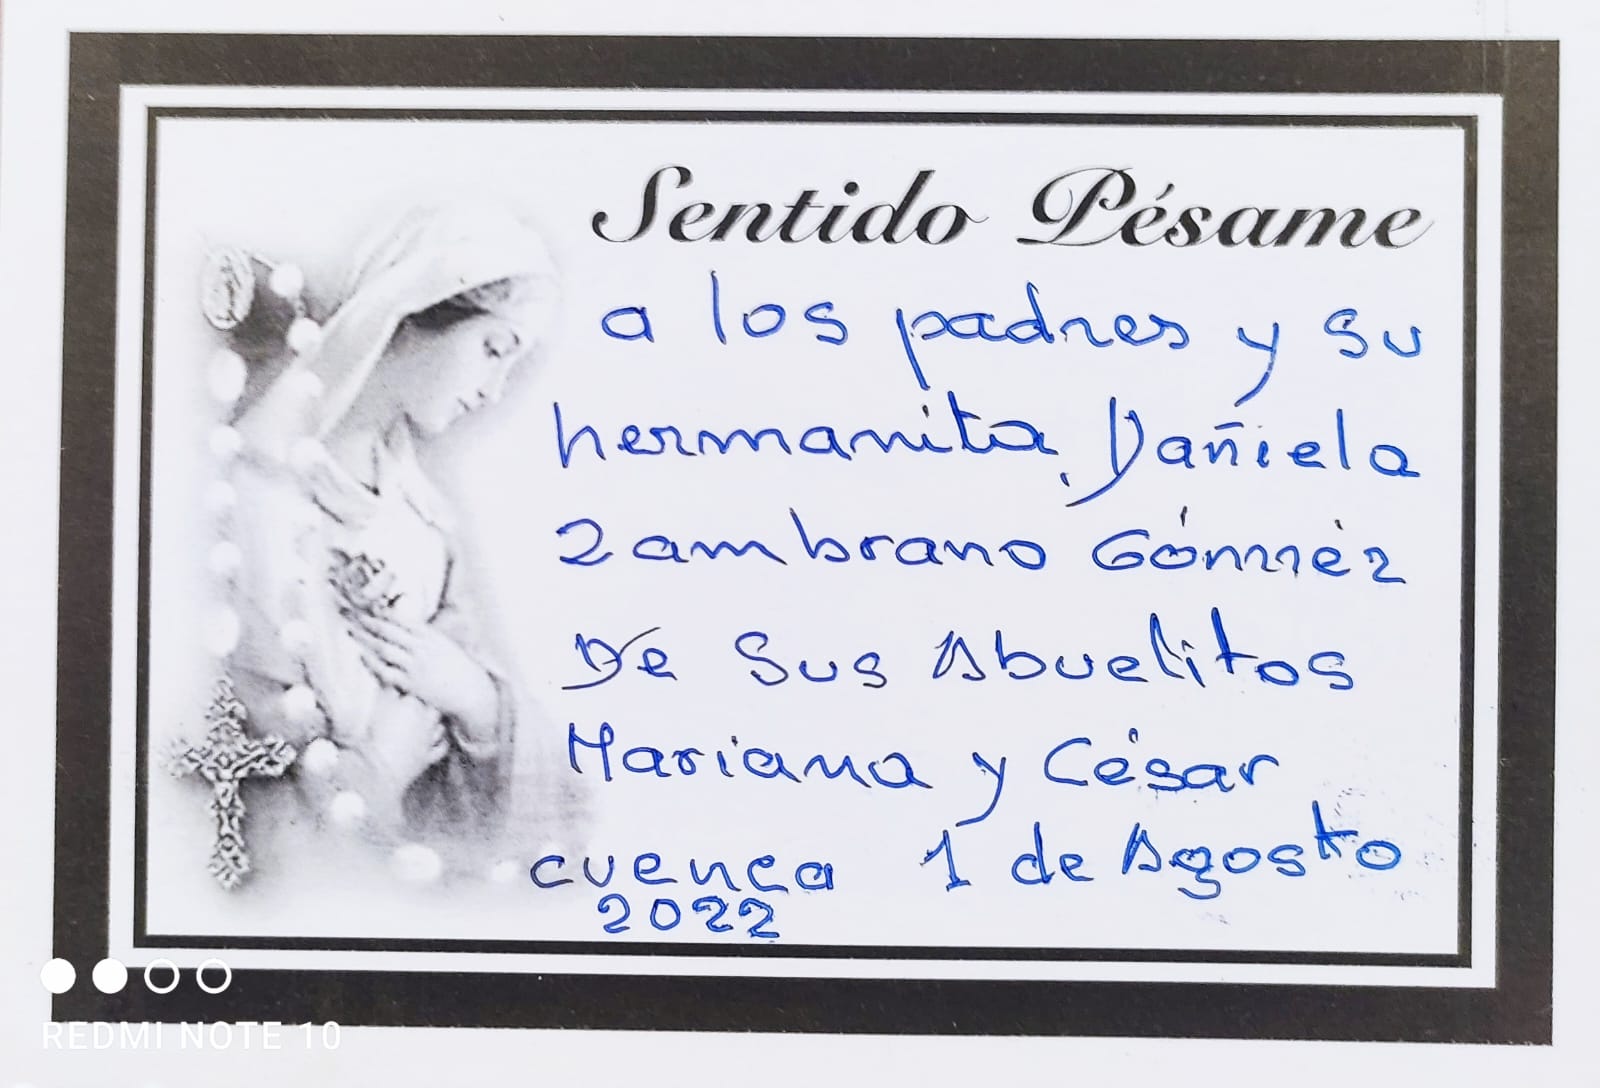 Sentido Pésame
a los padres y su
hermanita, Dañiela
Zambrano Gómez
De Sus Abuelitos
Mariana y César
cuenca 1 de Agosto
2022
REDMI NOTE 10